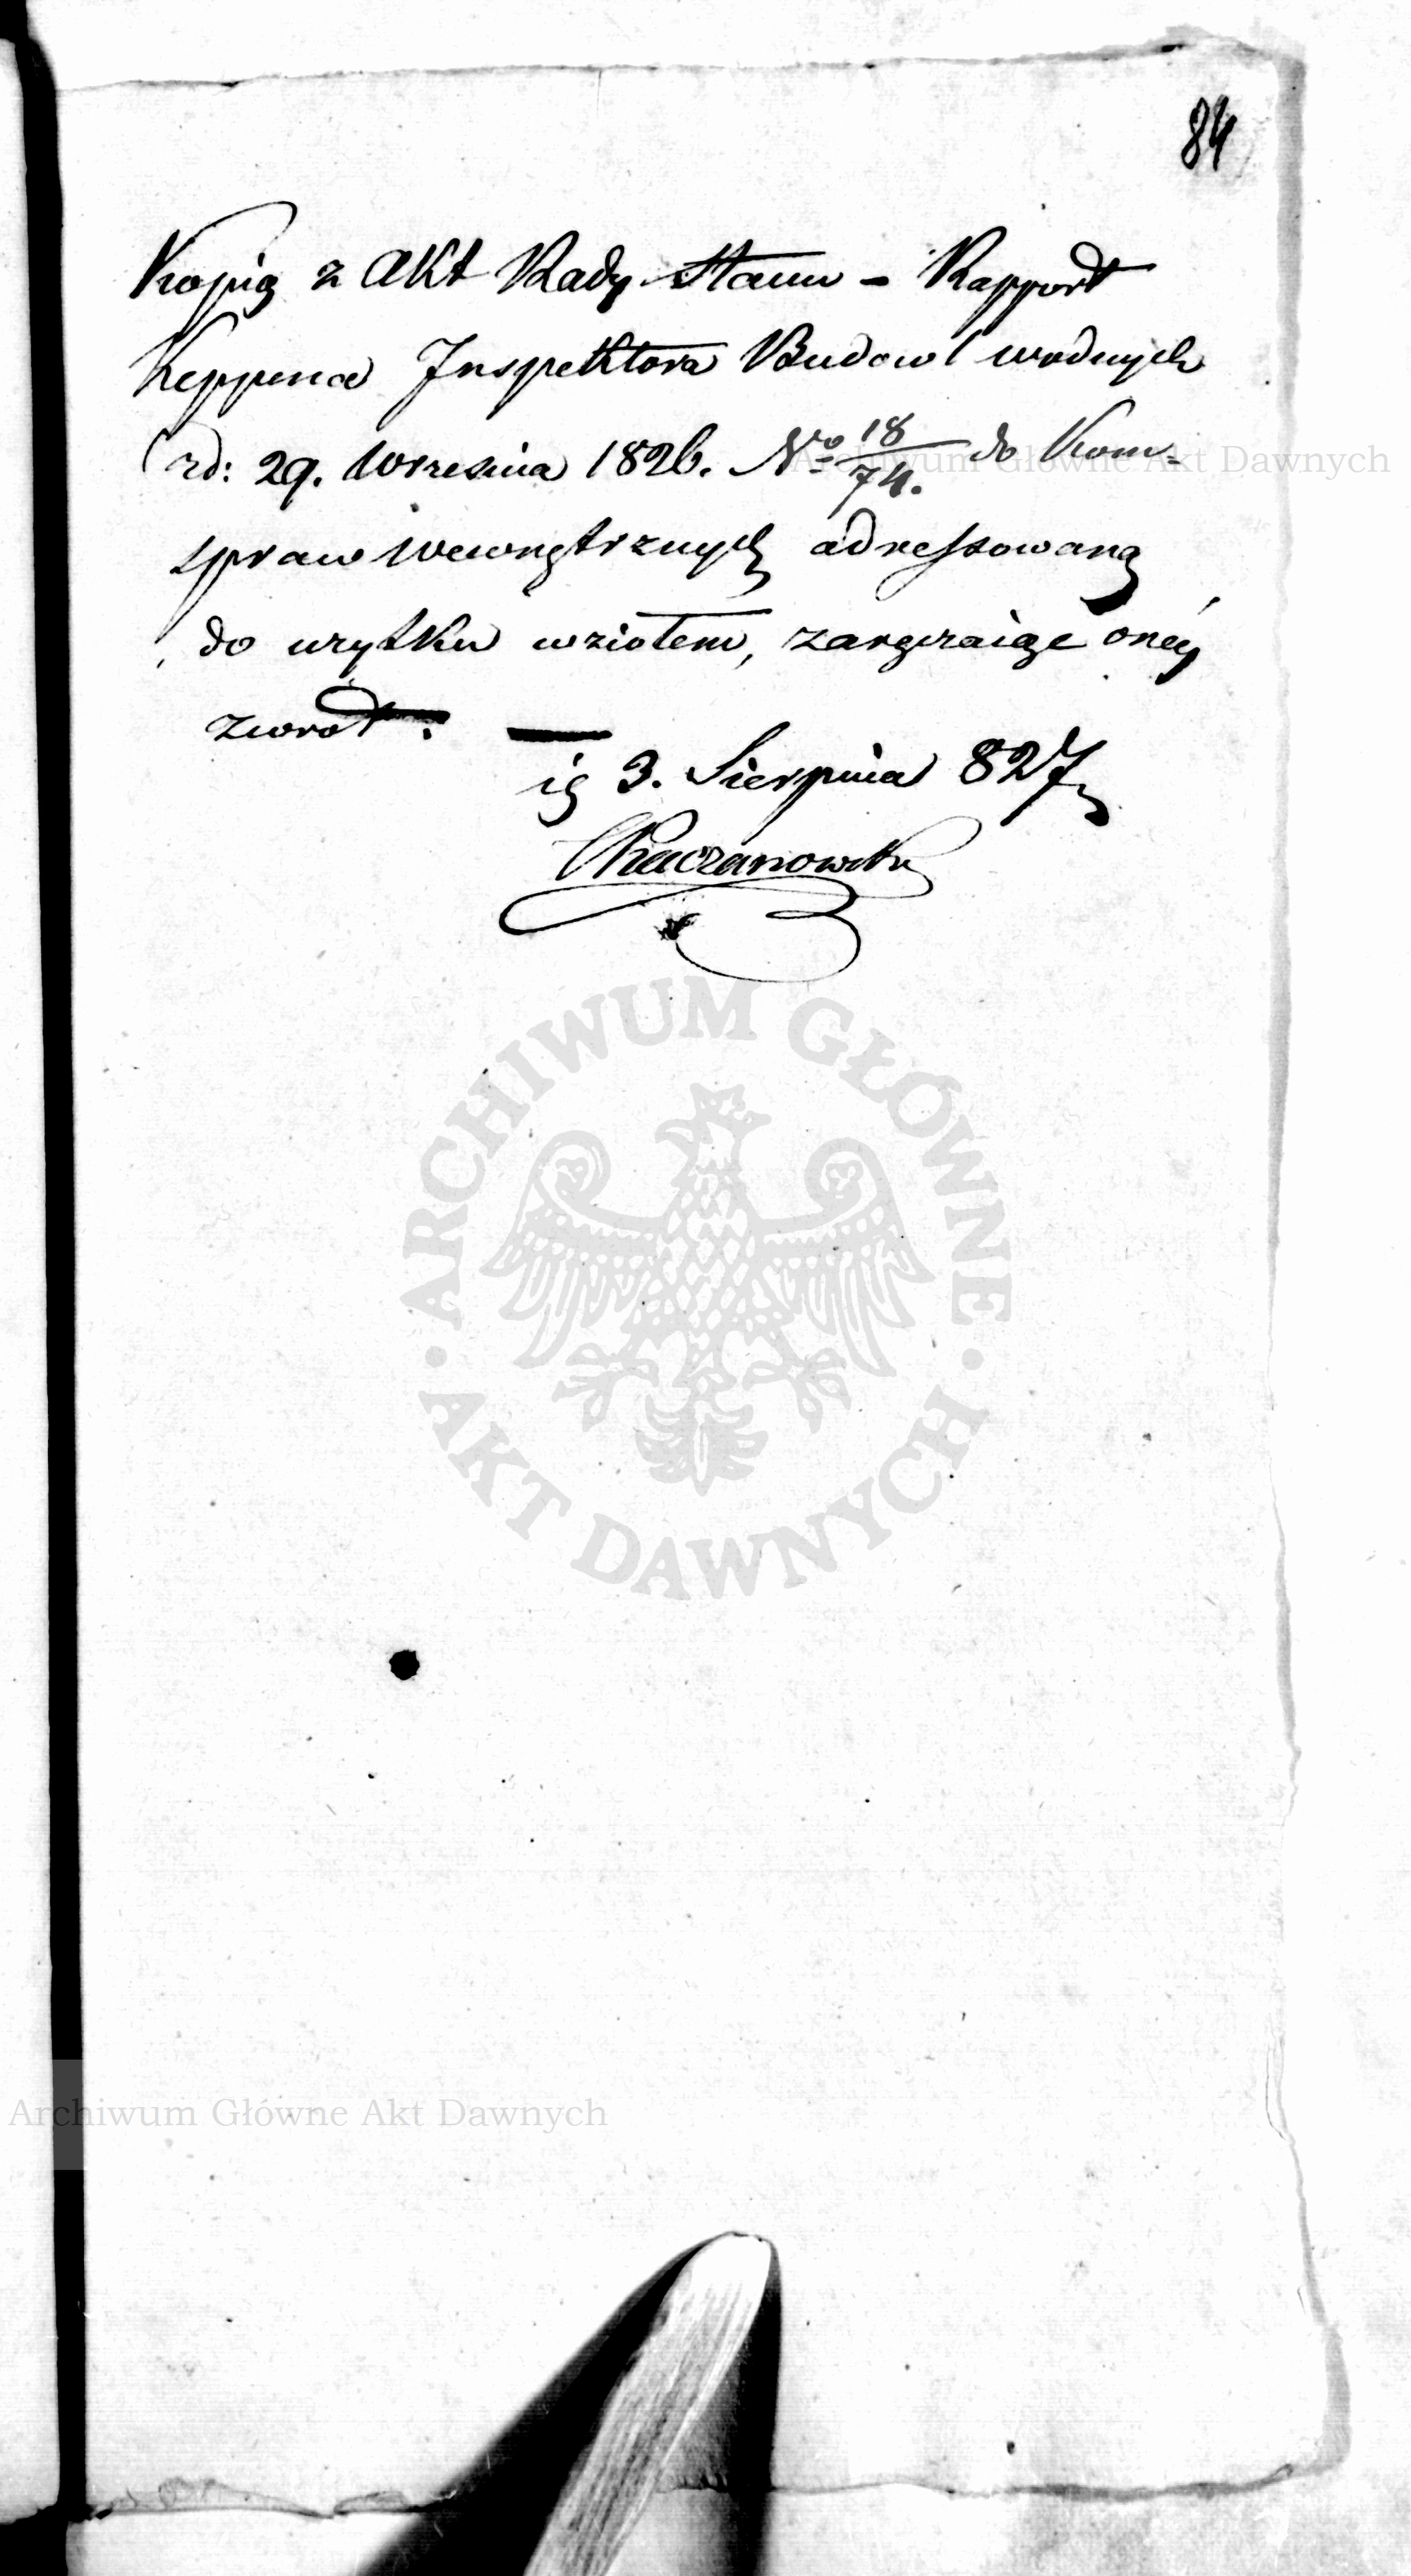 84
Kopią z Akt Rady Stanu - Rapport
Keppena Inspektora Budowl wodnych
zd: 29. Wrzesnia 1826. No 18/74. do Kom:
spraw wewnętrznych adressowaną
do użytku wziołem, zaręczaiąc oney
zwrot.
3. Sierpnia 827
Kaczanowski
ARCHIWUM GŁÓWNE AKT DAWNYCH
Archiwum Główne Akt Dawnych
Archiwum Główne Akt Dawnych